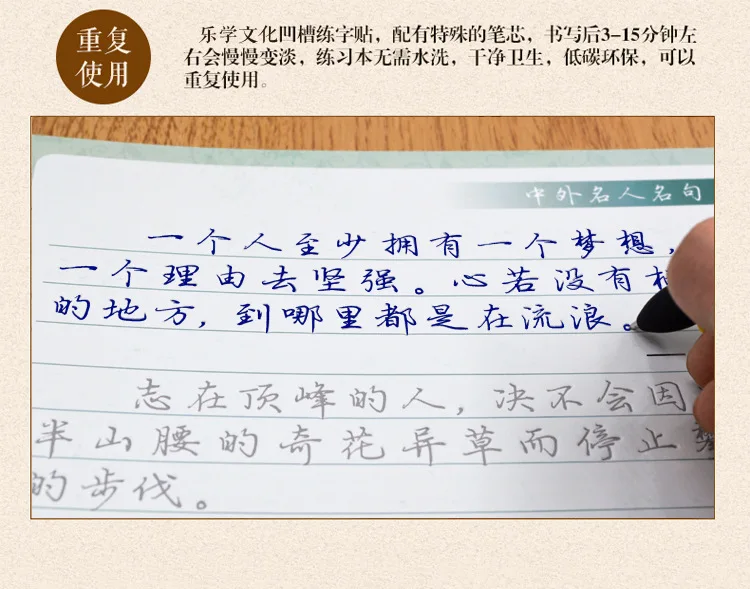 重复
使用
乐学文化凹槽练字贴，配有特殊的笔芯，书写后3-15分钟左
右会慢慢变淡，练习本无需水洗，干净卫生，低碳环保，可以
重复使用。
中外名人名句
一个人至少拥有一个梦想，
一个理由去坚强。心若没有
的地方，到哪里都是在流浪。
志在顶峰的人，决不会因
半山腰的奇花异草而停止
的步伐。